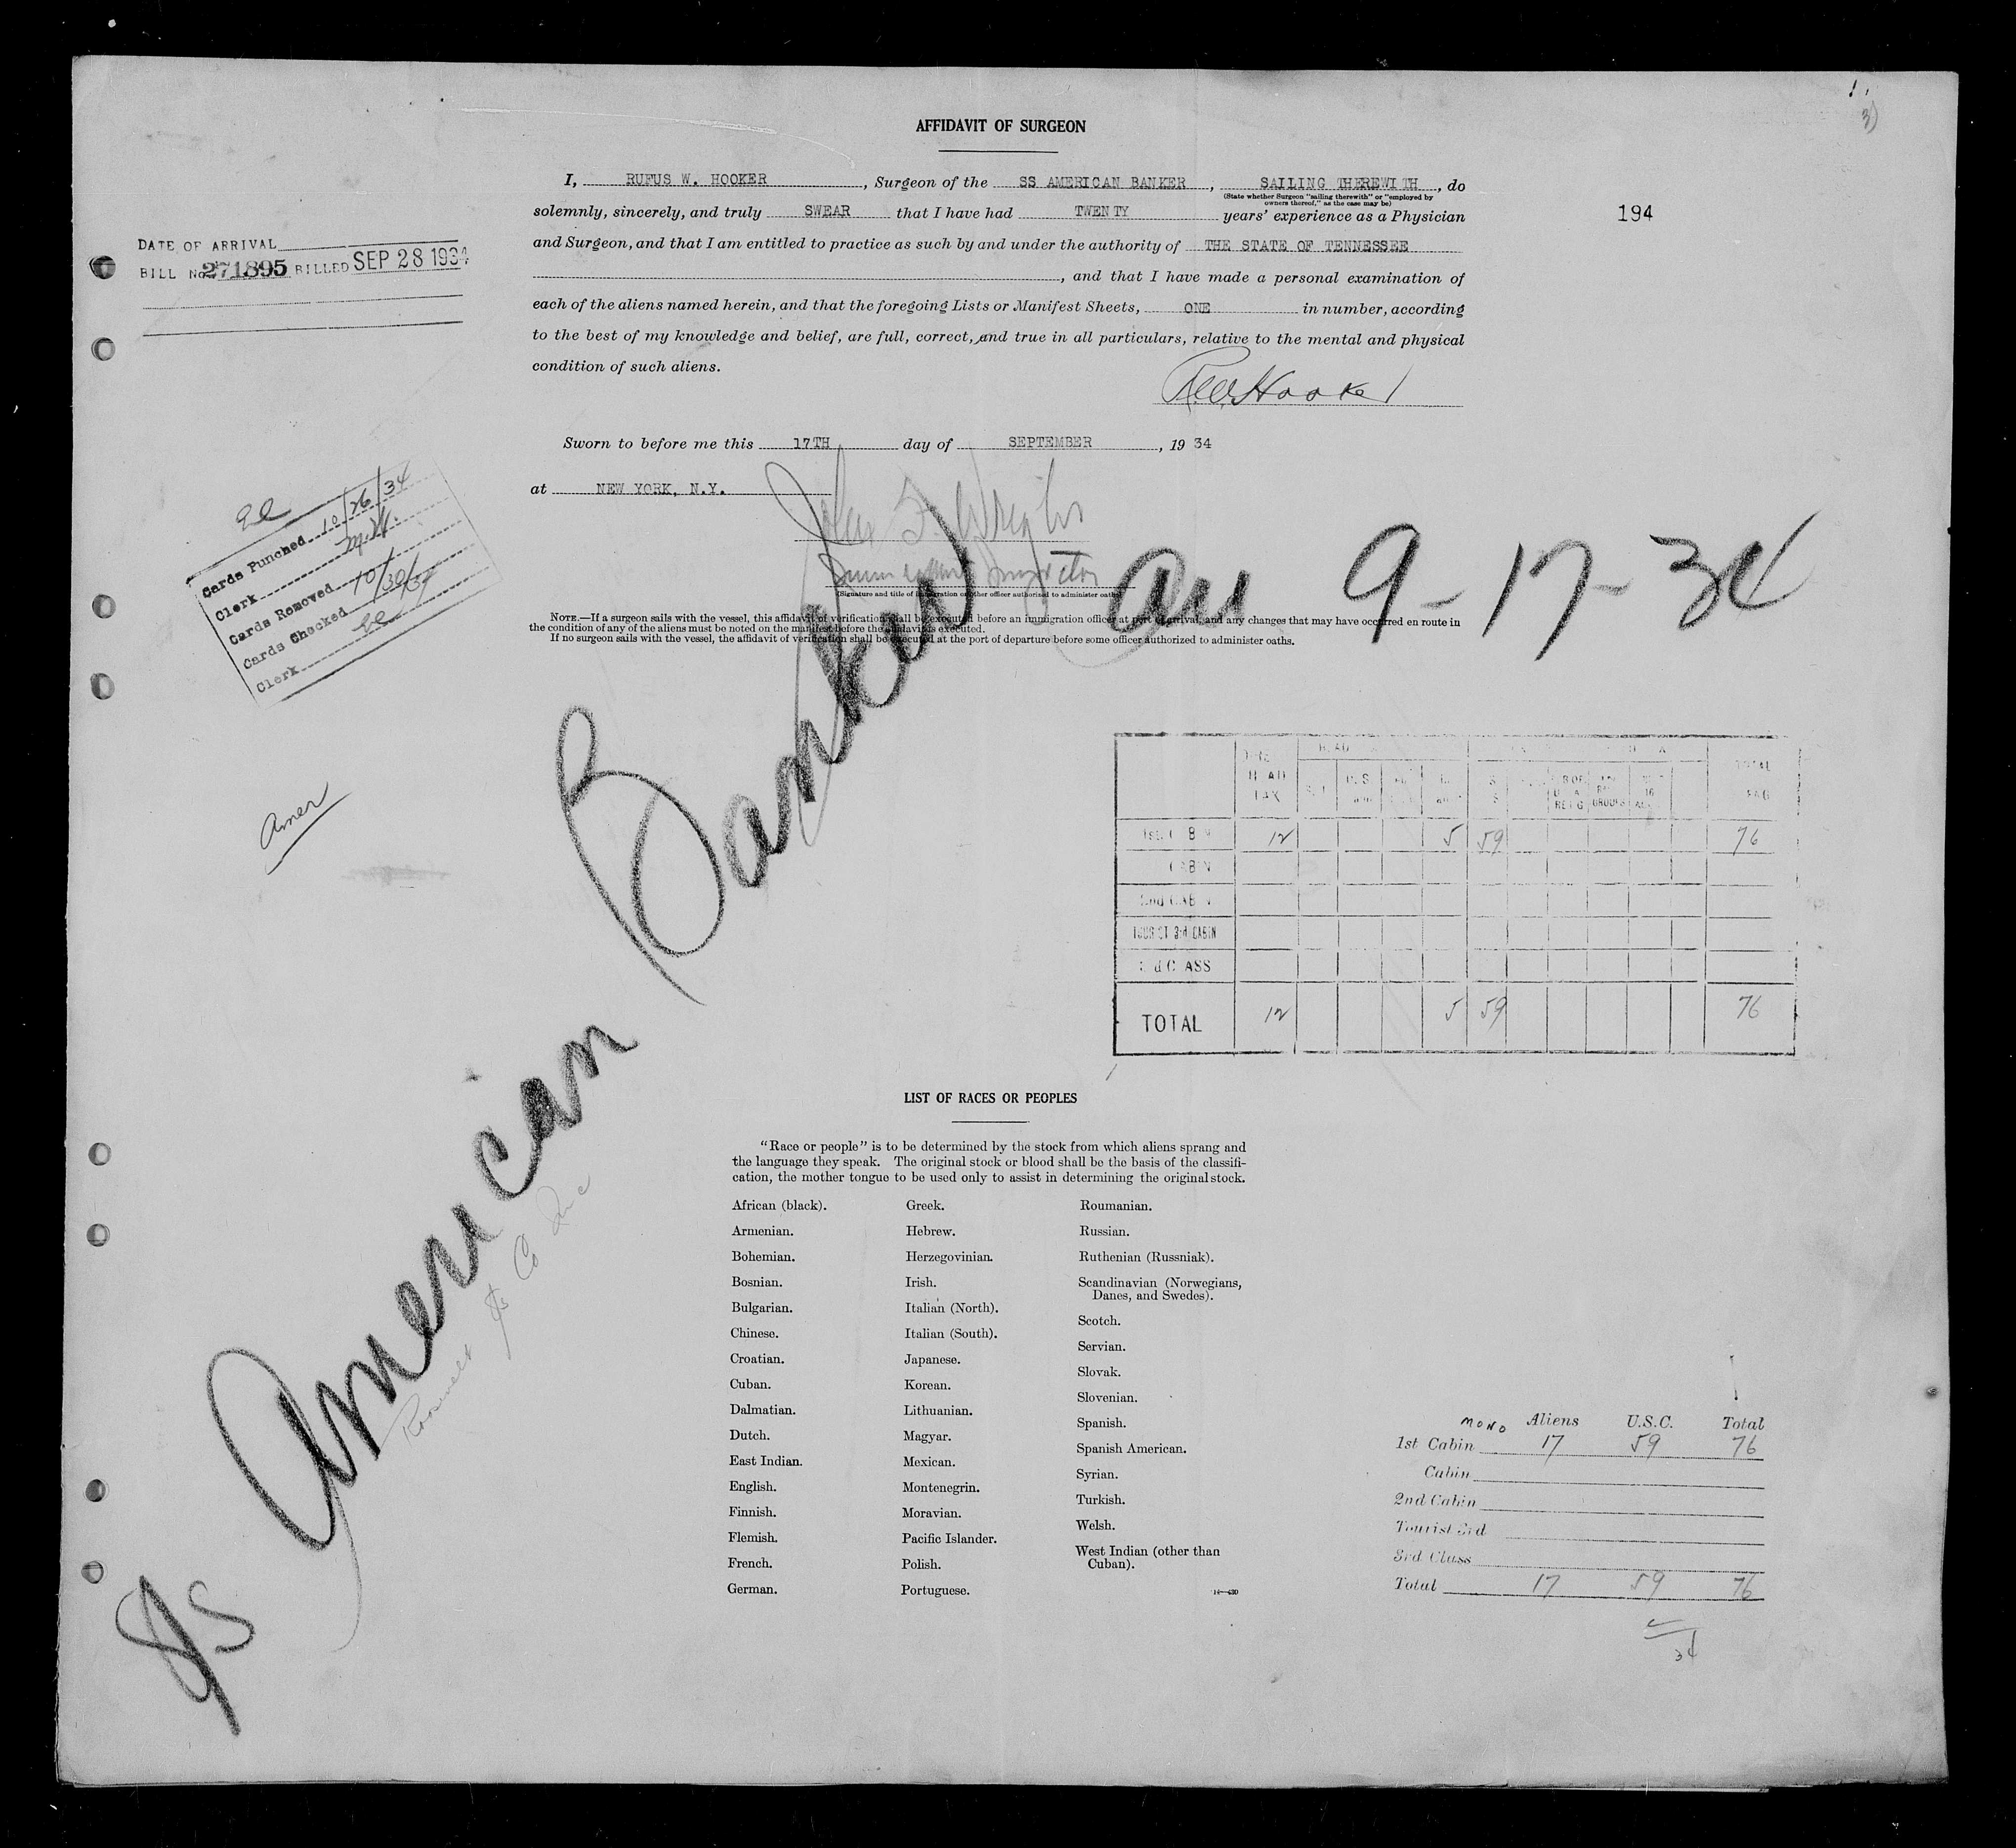 AFFIDAVIT OF SURGEON
I, RUFUS W. HOOKER, Surgeon of the SS AMERICAN BANKER, SAILING THEREWITH, do
(State whether Surgeon "sailing therewith" or "employed by
owners thereof," as the case may be)
solemnly, sincerely, and truly SWEAR that I have had TWENTY years' experience as a Physician
194
and Surgeon, and that I am entitled to practice as such by and under the authority of THE STATE OF TENNESSEE
, and that I have made a personal examination of
each of the aliens named herein, and that the foregoing Lists or Manifest Sheets, ONE in number, according
to the best of my knowledge and belief, are full, correct, and true in all particulars, relative to the mental and physical
condition of such aliens.
R W Hooker
Sworn to before me this 17TH day of SEPTEMBER, 19 34
at NEW YORK, N.Y.
(Signature and title of immigration or other officer authorized to administer oaths)
NOTE.—If a surgeon sails with the vessel, this affidavit of verification shall be executed before an immigration officer at port of arrival, and any changes that may have occurred en route in
the condition of any of the aliens must be noted on the manifest before the affidavit is executed.
If no surgeon sails with the vessel, the affidavit of verification shall be executed at the port of departure before some officer authorized to administer oaths.
DATE OF ARRIVAL
BILL No. 271895 BILLED SEP 28 1934
Cards Punched 10/26/34
Clerk
Cards Removed
Cards Checked 10/30/34
Clerk
Amer
S/S American Banker arr 9-17-34
Roosevelt SS Co Inc
HEAD TAX
TOTAL
1st CABIN 12 5 59 76
CABIN
2nd CABIN
TOURIST 3rd CABIN
3rd CLASS
TOTAL 12 5 59 76
LIST OF RACES OR PEOPLES
"Race or people" is to be determined by the stock from which aliens sprang and
the language they speak. The original stock or blood shall be the basis of the classifi-
cation, the mother tongue to be used only to assist in determining the original stock.
African (black).
Armenian.
Bohemian.
Bosnian.
Bulgarian.
Chinese.
Croatian.
Cuban.
Dalmatian.
Dutch.
East Indian.
English.
Finnish.
Flemish.
French.
German.
Greek.
Hebrew.
Herzegovinian.
Irish.
Italian (North).
Italian (South).
Japanese.
Korean.
Lithuanian.
Magyar.
Mexican.
Montenegrin.
Moravian.
Pacific Islander.
Polish.
Portuguese.
Roumanian.
Russian.
Ruthenian (Russniak).
Scandinavian (Norwegians,
Danes, and Swedes).
Scotch.
Servian.
Slovak.
Slovenian.
Spanish.
Spanish American.
Syrian.
Turkish.
Welsh.
West Indian (other than
Cuban).
MONO Aliens U.S.C. Total
1st Cabin 17 59 76
Cabin
2nd Cabin
Tourist 3rd
3rd Class
Total 17 59 76